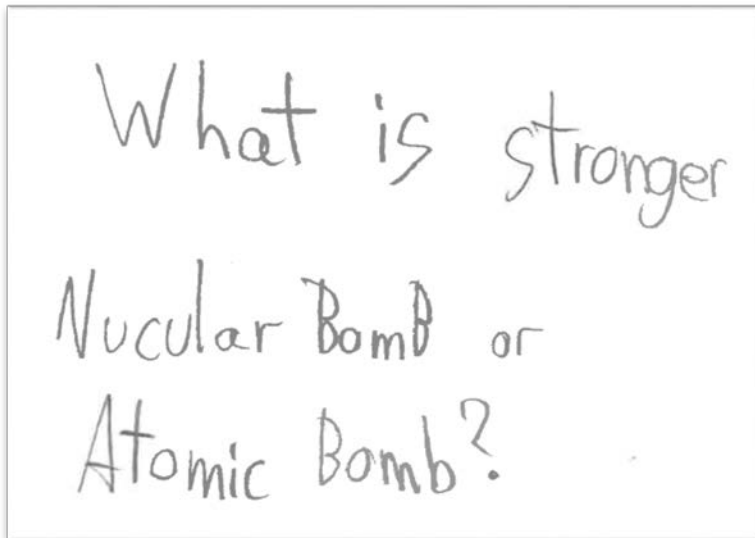 What is stronger
Nucular BomB or
Atomic Bomb?